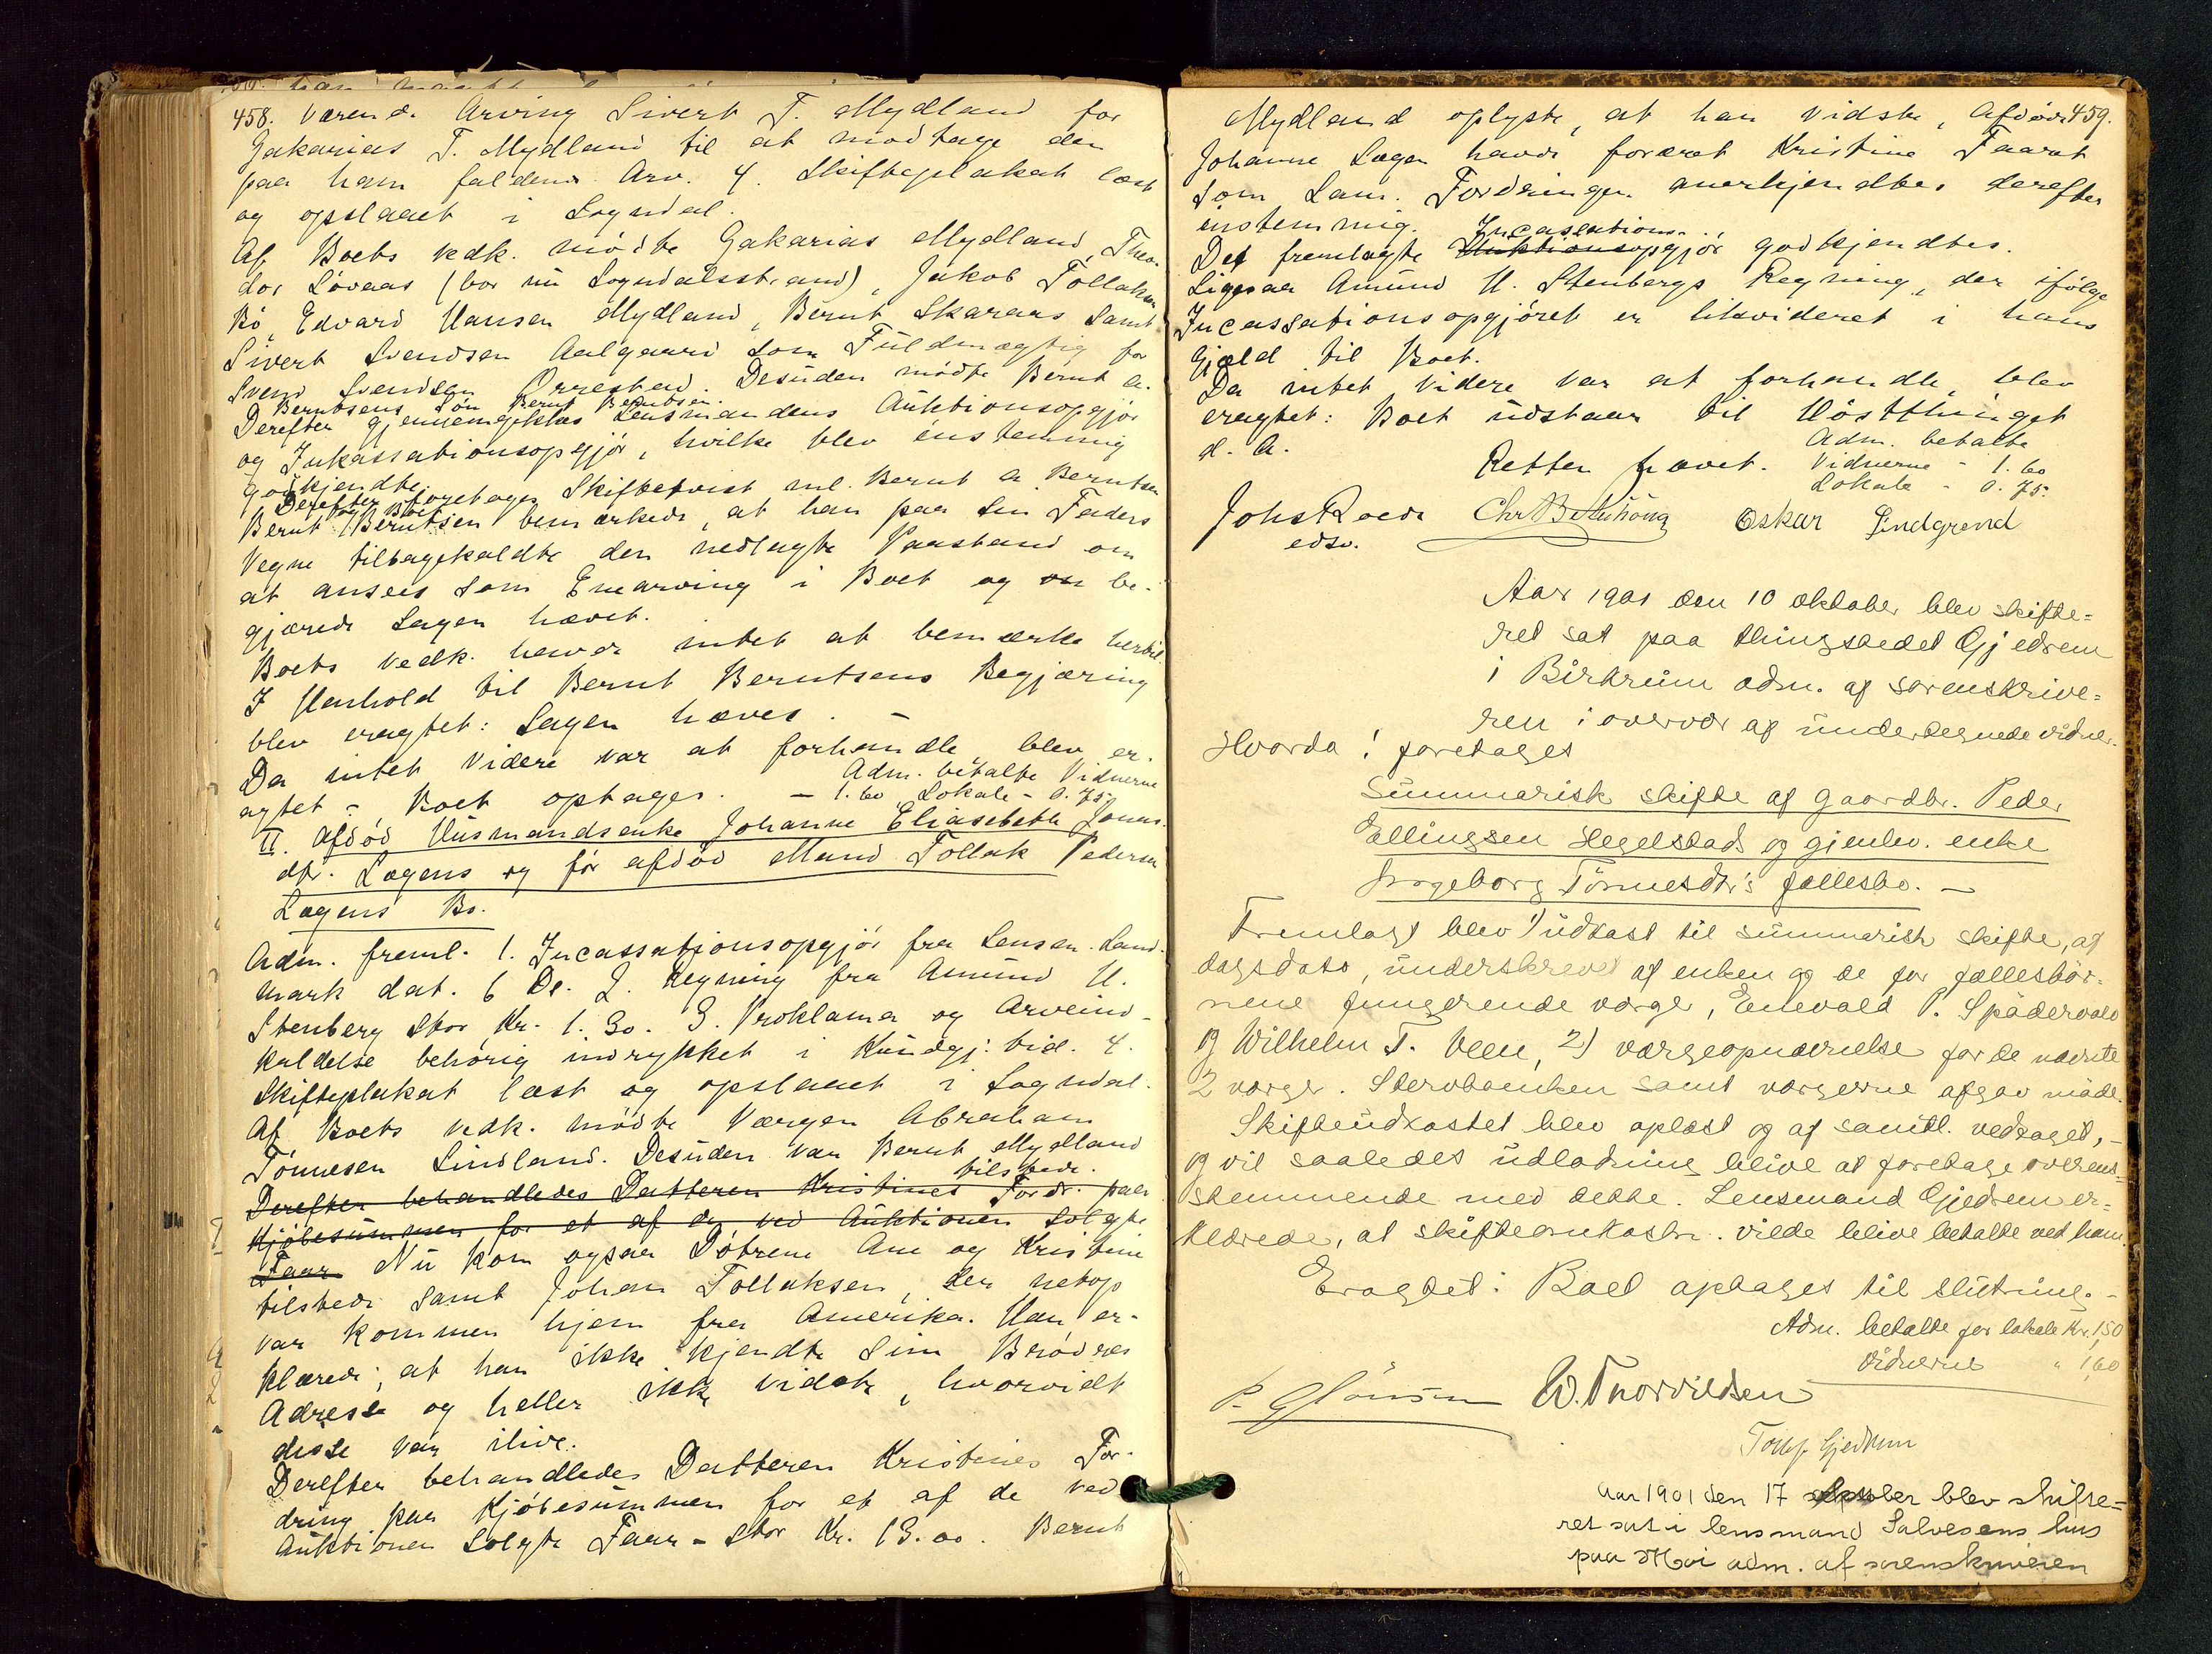 458. værende Arving Sivert T. Mydland for
Zakarias T. Mydland til at modtage den
paa ham faldende Arv. 4. Skifteplakat læst
og opslaaet i Sogndal.
Af Boets vedk. mödte Zakarias Mydland, Theo-
dor Lövaas (bor nu Sogndalsstrand), Jakob Tollaksen
Bö, Edvard Hansen Mydland, Bernt Skaraas samt
Sivert Svendsen Aalgaard som Fuldmægtig for
Svend Svendsen Ørrestad. Desuden mödte Bernt A.
Berntsens Sön Bernt Berntsen.
Derefter gjennemgikkes Lensmandens Auktionsopgjör
og Inkassationsopgjör, hvilke blev énstemmig
godkjendte.
Derefter foretoges Skiftetvist ml. Bernt A. Berntsen
og Boet
Bernt Berntsen bemærkede, at han paa sin Faders
Vegne tilbagekaldte den nedlagte Paastand om
at ansees som Enearving i Boet og be-
gjærede Sagen hævet.
Boets vedk. havde intet at bemærke hertil.
I Henhold til Bernt Berntsens Begjæring
blev eragtet: Sagen hæves. -
Da intet videre var at forhandle blev er-
agtet: Boet optages. Adm. betalte Vidnerne
- 1.60 Lokale - 0.75
II. Afdöd Husmandsenke Johanne Eliasebeth Jonas-
dtr. Lægens og för afdöd Mand Tollak Pedersen
Lægens Bo.
Adm. freml. 1. Incassationsopgjör fra Lensm. Land-
mark dat. 6 Ds. 2. Regning fra Amund H.
Stenberg stor Kr. 1.30. 3. Proklama og Arveind-
kaldelse behörig indrykket i Kundgj. tid. 4.
Skifteplakat læst og opslaaet i Sogndal.
Af Boets vedk. mödte Værgen Abraham
Tönnesen Lindland. Desuden var Bernt Mydland
tilstede.
Derefter behandledes Datteren Kristines Fordr. paa
Kjöbesummen for et af de ved Auktionen solgte
Faar. Nu kom ogsaa Döttrene Ane og Kristine
tilstede samt Johan Tollaksen, der netop
var kommen hjem fra Amerika. Han er-
klærede, at han ikke kjendte sine Brödres
Adresse og heller ikke vidste, hvorvidt
disse var ilive.
Derefter behandledes Datteren Kristines For-
dring paa Kjöbesummen for et af de ved
Auktionen solgte Faar - stor Kr. 13.00. Bernt
Mydland oplyste, at han vidste, Afdöde 459.
Johanne Lægen havde foræret Kristine Faaret
som Lam. Fordringen anerkjendtes derefter
énstemmig. Incassations-
Det fremlagte Auktionsopgjör godkjendtes.
Ligesaa Amund H. Stenbergs Regning, der ifölge
Incassationsopgjöret er likvideret i hans
Gjæld til Boet.
Da intet videre var at forhandle, blev
eragtet: Boet udstaar til Höstthinget
d. A.
Adm. betalte
Retten hævet. Vidnerne - 1.60
Lokale - 0.75.
Johs Roede Oskar Lindgrend
edsv.
Aar 1901 den 10 oktober blev skifte=
ret sat paa thingstedet Gjedrem
i Birkrem adm. af sorenskrive=
ren i overvær af undertegnede vidner.
Hvorda! foretages
Summarisk skifte af gaardbr. Peder
Ellingsen Hegelstads og gjenlev. enke
Ingeborg Tönnesdtr's fællesbo. -
Fremlagt blev 1) udkast til summarisk skifte, af
dagsdato, underskrevet af enken og de for fællesbör-
nene fungerende værger, Enevald P. Spödervold
og Wilhelm T. Veen, 2) værgeopnævnelse for de nævnte
2 værger. Stervboenken samt værgerne afgav möde.
Skifteudkastet blev oplæst og af samtl. vedtaget, -
og vil saaledes udlodning blive at foretage overens=
stemmende med dette. Lensmand Gjedrem er=
klærede, at skifteomkostn. vilde blive betalte ved ham.
Eragtet: Boet optages til slutning. -
Adm. betalte for lokale Kr. 1,50
vidnerne " 1,60
W. Thorvildsen
Tolleif Gjedrem
Aar 1901 den 17 blev skifte=
ret sat i lensmand Salvesens hus
paa Moi adm. af sorenskriveren